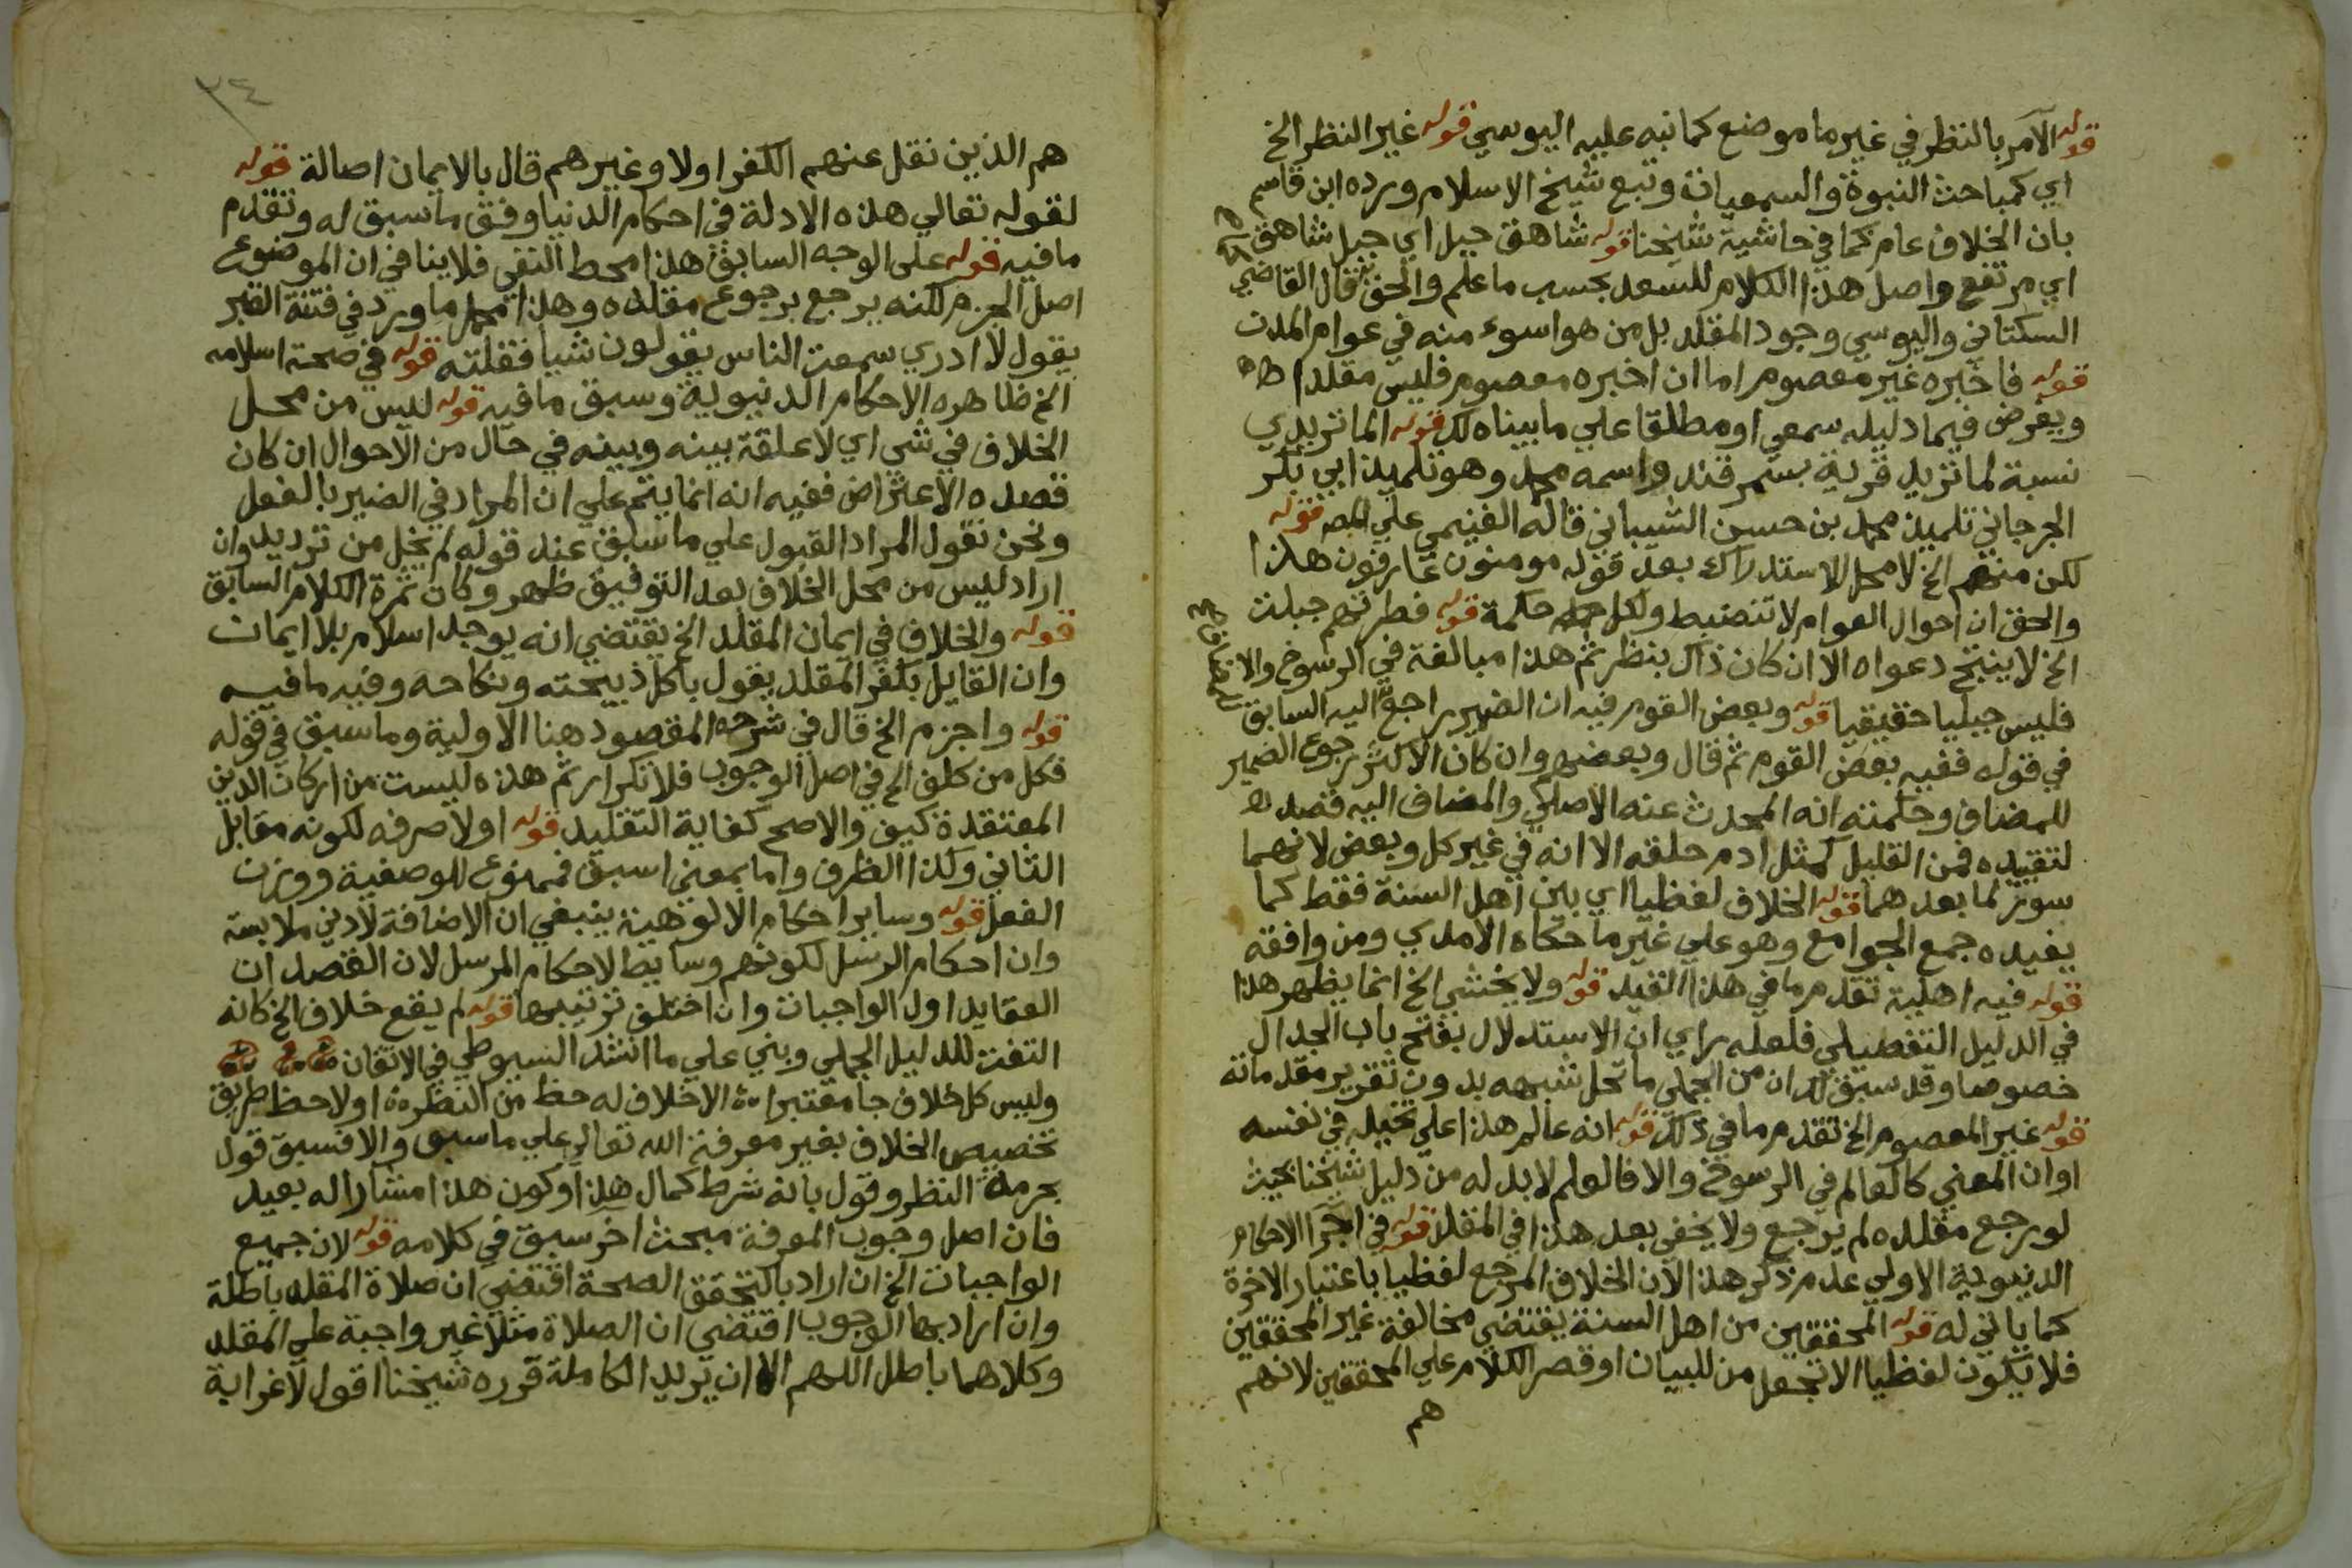 قوله الآمر بالنظر في غير ما موضع كما نبه عليه اليوسي قوله غير النظر الخ
اي كمباحث النبوة والسمعيات وتبع شيخ الاسلام ورده ابن قاسم
بان الخلاف عام كما في حاشية شيخنا قوله شاهق جبل اي جبل شاهق
اي مرتفع واصل هذا الكلام للسعد بحسب ما علم والحق قال القاضي
السكتاني واليوسي وجود المقلد بل من هو اسوء منه في عوام المدن
قوله فاخبره غير معصوم اما ان اخبره معصوم فليس مقلدا
ويفرض فيما دليله سمعي او مطلقا علي ما بيناه لك قوله الماتريدي
نسبة لماتريد قرية بسمرقند واسمه محمد وهو تلميذ ابي بكر
الجرجاني تلميذ محمد بن حسن الشيباني قاله الغنيمي علي المص قوله
لكن منهم الخ لا محل للاستدراك بعد قوله مومنون عارفون هذا
والحق ان احوال العوام لا تنضبط ولكل حكمة قوله فطرتهم جبلت
الخ لا ينتج دعواه الا ان كان ذاك بنظر ثم هذا مبالغة في الرسوخ والا
فليس جبليا حقيقيا قوله وبعض القوم فيه ان الضمير راجع اليه السابق
في قوله ففيه بعض القوم ثم قال وبعضهم وان كان الاكثر رجوع الضمير
للمضاف وحكمته انه المحدث عنه الاصلي والمضاف اليه قصد
لتقييده فمن القليل كمثل ادم خلقه الا انه في غير كل وبعض لانهما
سور لما بعدهما قوله الخلاف لفظيا اي بين اهل السنة فقط كما
يفيده جمع الجوامع وهو علي غير ما حكاه الامدي ومن وافقه
قوله فيه اهلية تقدم ما في هذا القيد قوله ولا يخشي الخ انما يظهر هذا
في الدليل التفصيلي فلعله راي ان الاستدلال يفتح باب الجدال
خصوصا وقد سبق لك ان من الجملي ما تحل شبهه بدون تقرير مقدماته
قوله غير المعصوم الخ تقدم ما في ذلك قوله انه عالم هذا علي تخيله في نفسه
اوان المعني كالعالم في الرسوخ والا فالعلم لا بد له من دليل شيخنا بحيث
لو رجع مقلده لم يرجع ولا يخفي بعد هذا في المقلد قوله في اجرآ الاحكام
الدنيوية الاولي عدم ذكر هذا الان الخلاف المرجع لفظيا باعتبار الاخرة
كما ياتي له قوله المحققين من اهل السنة يقتضي مخالفة غير المحققين
فلا يكون لفظيا الا تجعل من للبيان او قصر الكلام علي المحققين لانهم
هم
٣٤
هم الذين نقل عنهم الكفر اولا وغيرهم قال بالايمان اصالة قوله
لقوله تعالي هذه الادلة في احكام الدنيا وفق ما سبق له وتقدم
ما فيه قوله علي الوجه السابق هذا محط النفي فلا ينافي ان الموضوع
اصل الجزم لكنه يرجع برجوع مقلده وهذا محمل ما ورد في فتنة القبر
يقول لا ادري سمعت الناس يقولون شيا فقلته قوله في صحة اسلامه
الخ ظاهره الاحكام الدنيوية وسبق ما فيه قوله ليس من محل
الخلاف في شي اي لا علقة بينه وبينه في حال من الاحوال ان كان
قصده الاعتراض ففيه انه انما يتم علي ان المراد في الضير بالفعل
ونحن نقول المراد القبول علي ما سبق عند قوله لم يخل من ترديد وان
اراد ليس من محل الخلاف بعد التوفيق ظهر وكان ثمرة الكلام السابق
قوله والخلاف في ايمان المقلد الخ يقتضي انه يوجد اسلام بلا ايمان
وان القايل بكفر المقلد يقول باكل ذبيحته ونكاحه وفيه ما فيه
قوله واجزم الخ قال في شرحه المقصود هنا الاولية وما سبق في قوله
فكل من كلف الخ في اصل الوجوب فلا تكرار ثم هذه ليست من اركان الدين
المعتقدة كيف والاصح كفاية التقليد قوله اولا صرفه لكونه مقابل
الثاني وكذا الظرف واما بمعني اسبق فممنوع للوصفية ووزن
الفعل قوله وساير احكام الالوهية ينبغي ان الاضافة لادني ملابسة
وان احكام الرسل لكونهم وسايط لاحكام المرسل لان القصد ان
العقايد اول الواجبات وان اختلف ترتيبها قوله لم يقع خلاف الخ كانه
التفت للدليل الجملي وبني علي ما انشد السيوطي في الاتقان
وليس كل خلاف جا معتبرا ۞ الا خلاف له حظ من النظر ۞ اولا حظ طريق
تخصيص الخلاف بغير معرفة الله تعالي علي ما سبق والا فسبق قول
بحرمة النظر وقول بانه شرط كمال هذا وكون هذا مشارا له بعيد
فان اصل وجوب المعرفة مبحث اخر سبق في كلامه قوله لان جميع
الواجبات الخ ان اراد بالتحقق الصحة اقتضي ان صلاة المقلد باطلة
وان اراد بها الوجوب اقتضي ان الصلاة مثلا غير واجبة علي المقلد
وكلاهما باطل اللهم الا ان يريد الكاملة قرره شيخنا اقول لا غرابة